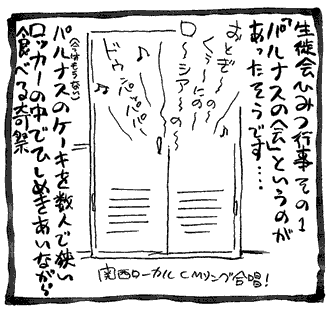 生徒会ひみつ行事その1
「パルナスの会」というのが
あったそうです‥‥
おとぎ〜の
くぅ〜にの〜
ロ〜シア〜の〜
♪
ドゥパパパパ
♪
(今はもうない)
パルナスのケーキを数人で狭い
ロッカーの中でひしめきあいながら
食べる奇祭
関西ローカルCMソング合唱!